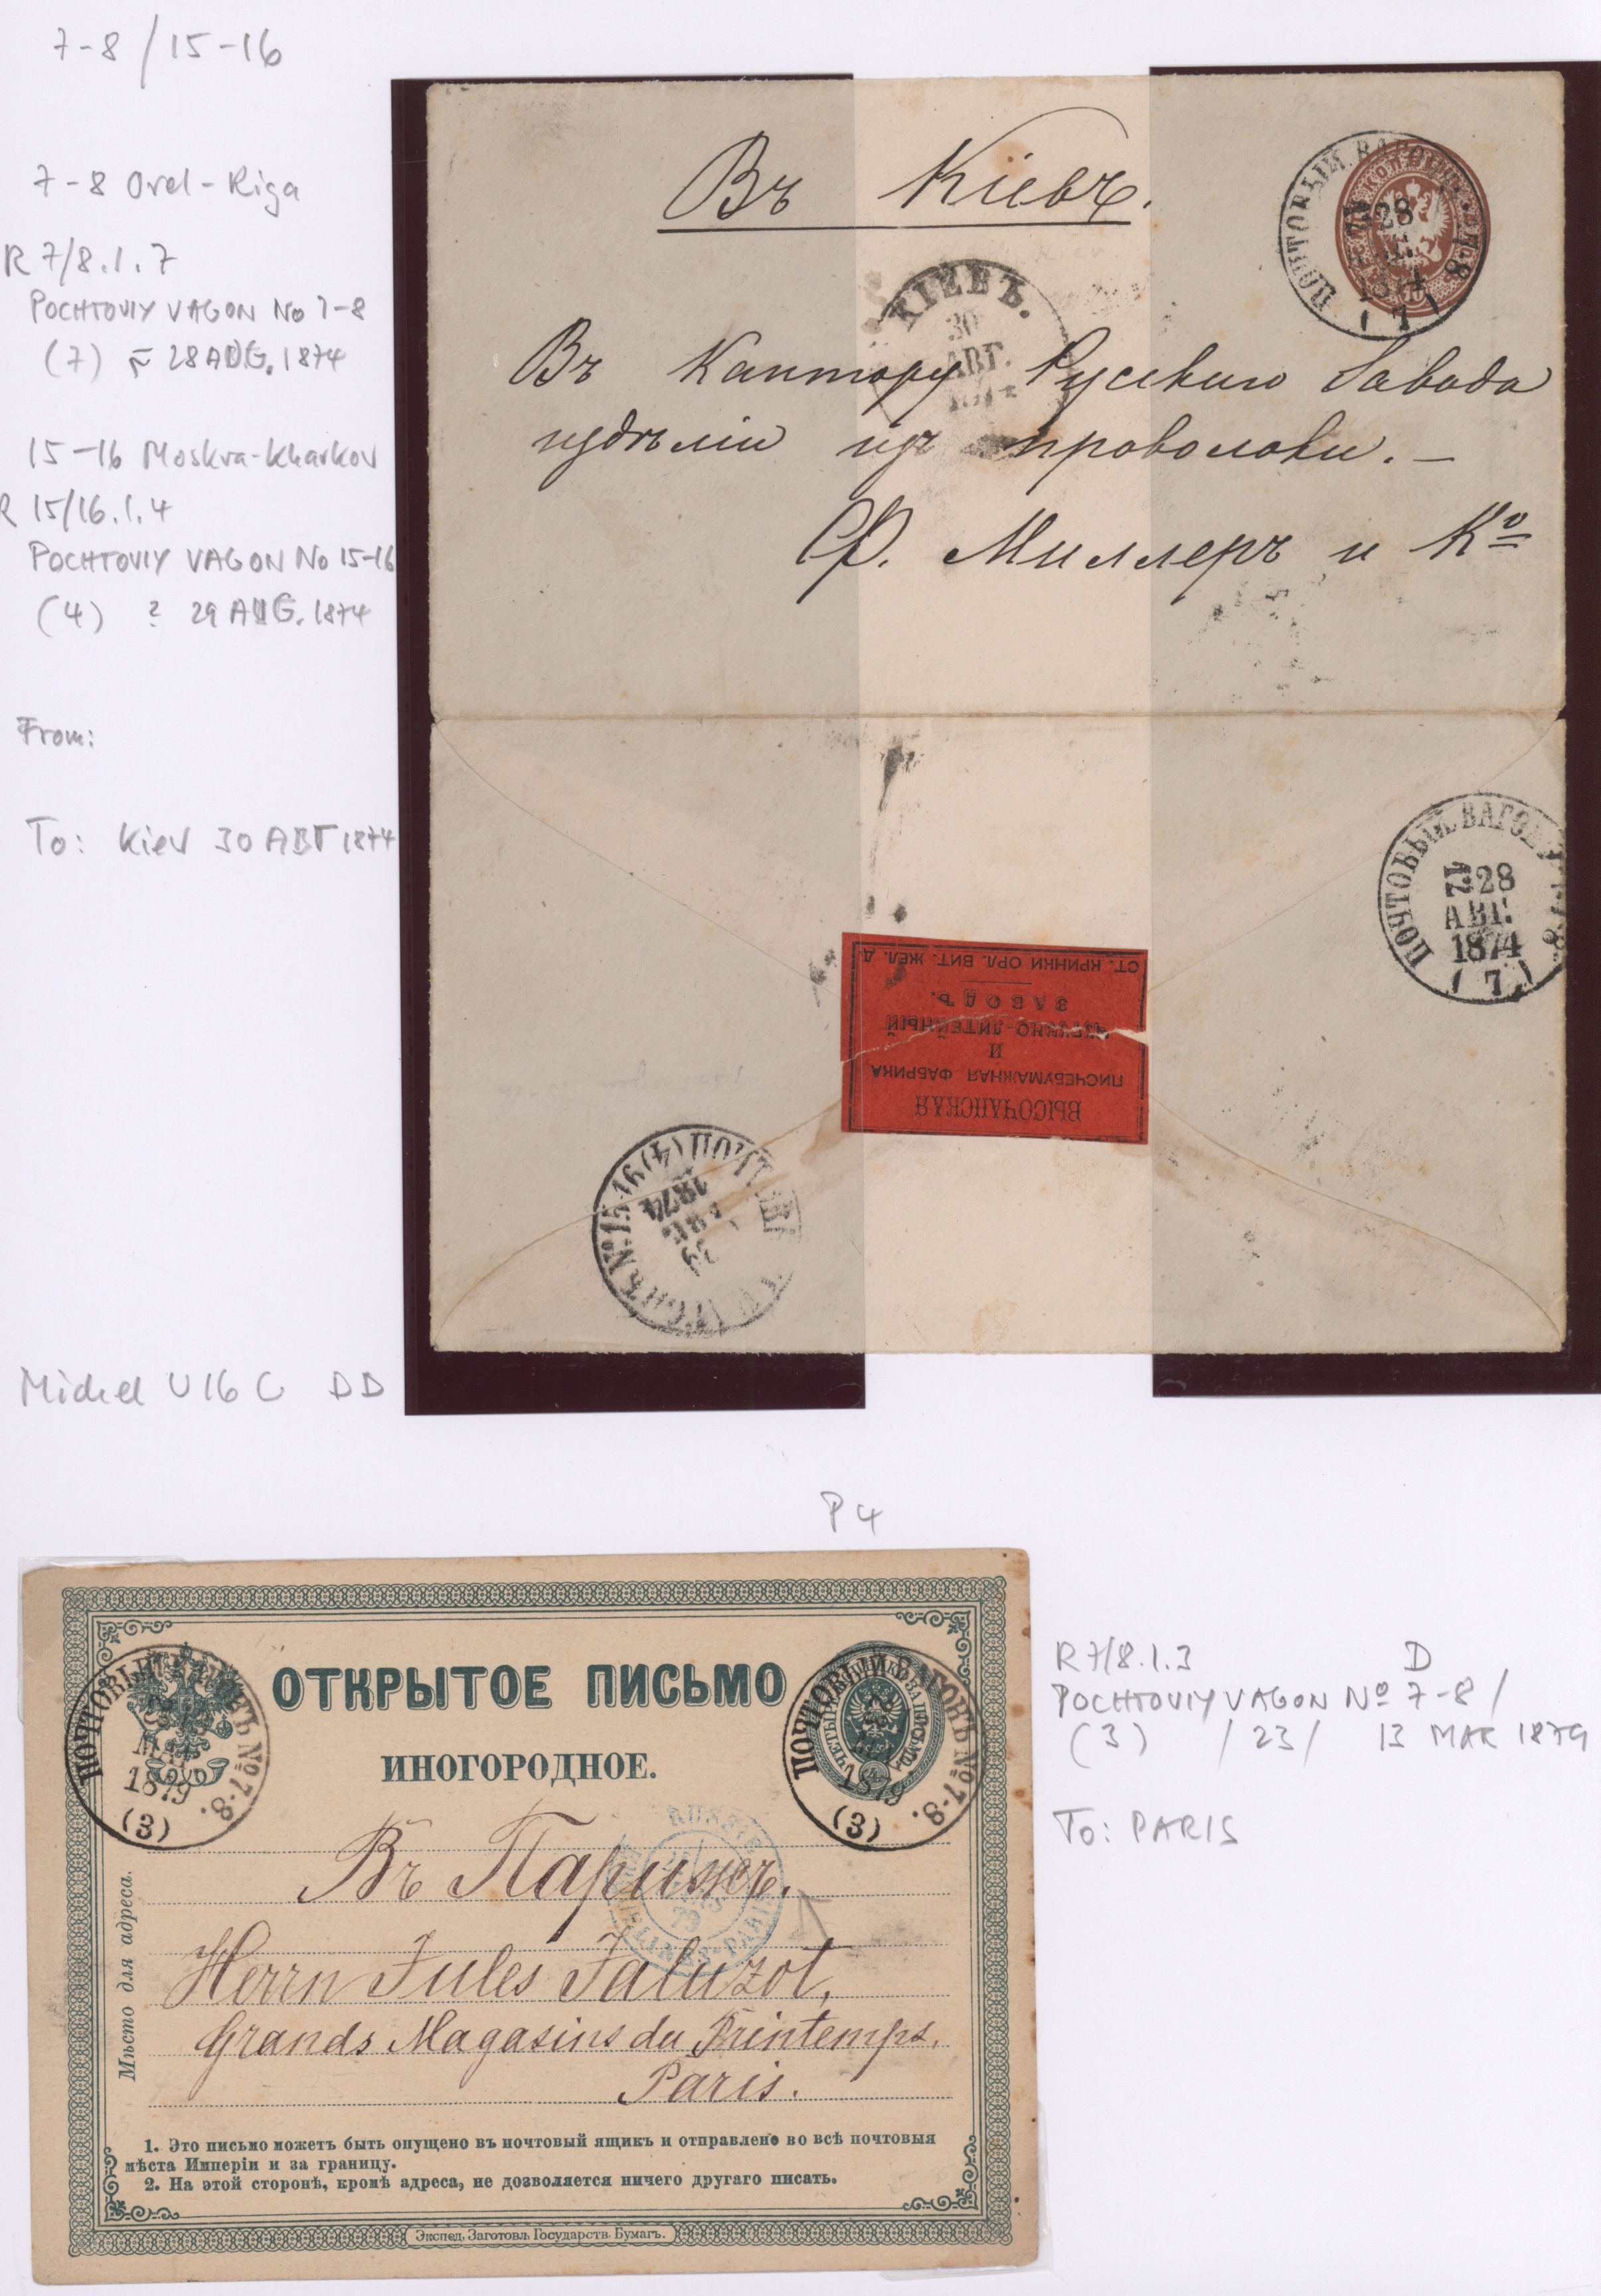 7-8/15-16
7-8 Orel-Riga
R 7/8.1.7
POCHTOVIY VAGON No 7-8
(7) 28 AUG. 1874
15-16 Moskva-Kharkov
R 15/16.1.4
POCHTOVIY VAGON No 15-16
(4) ? 29 AUG. 1874
From:
To: Kiev 30 АВГ 1874
Michel U16 C DD
Въ Кіевъ.
ПОЧТОВЫЙ
28
1874
(7)
КІЕВЪ.
30
АВГ.
1874
Въ Кантору Русскаго Завода
издѣлій изъ проволоки. —
Ѳ. Миллеръ и Кº
ПОЧТОВЫЙ ВАГОНЪ
28
АВГ.
1874
(7)
ВЫСОЧАНСКАЯ
ПИСЧЕБУМАЖНАЯ ФАБРИКА
И
ЧУГУННО-ЛИТЕЙНЫЙ
ЗАВОДЪ.
СТ. КРИНКИ ОРЛ. ВИТ. ЖЕЛ. Д
№ 15-16 (4)
29
1874
P 4
ОТКРЫТОЕ ПИСЬМО
ИНОГОРОДНОЕ.
ПОЧТОВЫЙ ВАГОНЪ № 7-8.
1879
(3)
ПОЧТОВЫЙ ВАГОНЪ № 7-8.
1879
(3)
RUSSIE
79
Въ Парижъ.
Herrn Jules Jaluzot,
Grands Magasins du Printemps.
Paris.
Мѣсто для адреса.
1. Это письмо можетъ быть опущено въ почтовый ящикъ и отправлено во всѣ почтовыя
мѣста Имперіи и за границу.
2. На этой сторонѣ, кромѣ адреса, не дозволяется ничего другаго писать.
Экспед. Заготовл. Государств. Бумагъ.
R 7/8.1.3 D
POCHTOVIY VAGON Nº 7-8 /
(3) / 23 / 13 MAR 1879
To: PARIS